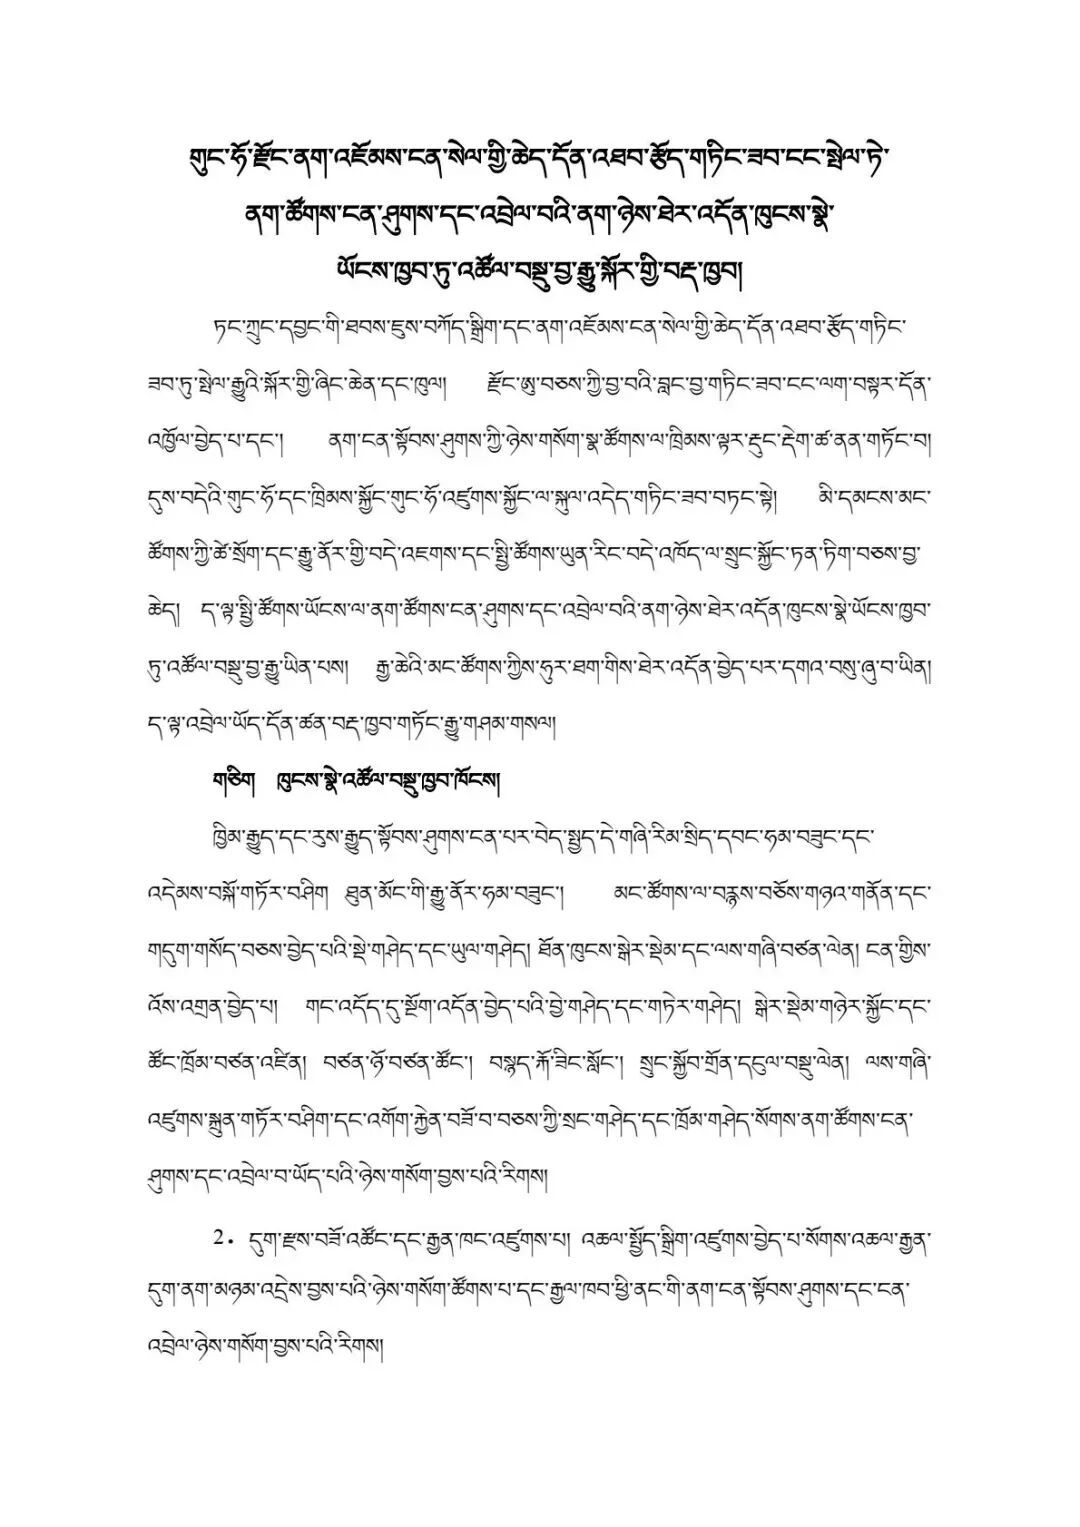 གུང་ཧོ་རྫོང་ནག་འཇོམས་ངན་སེལ་གྱི་ཆེད་དོན་འཐབ་རྩོད་གཏིང་ཟབ་ངང་སྤེལ་ཏེ་
ནག་ཚོགས་ངན་ཤུགས་དང་འབྲེལ་བའི་ནག་ཉེས་ཐེར་འདོན་ཁུངས་སྣེ་
ཡོངས་ཁྱབ་ཏུ་འཚོལ་བསྡུ་བྱ་རྒྱུ་སྐོར་གྱི་བརྡ་ཁྱབ།
ཏང་ཀྲུང་དབྱང་གི་ཐབས་ཇུས་བཀོད་སྒྲིག་དང་ནག་འཇོམས་ངན་སེལ་གྱི་ཆེད་དོན་འཐབ་རྩོད་གཏིང་
ཟབ་ཏུ་སྤེལ་རྒྱུའི་སྐོར་གྱི་ཞིང་ཆེན་དང་ཁུལ། རྫོང་ཨུ་བཅས་ཀྱི་བྱ་བའི་བླང་བྱ་གཏིང་ཟབ་ངང་ལག་བསྟར་དོན་
འཁྱོལ་བྱེད་པ་དང་། ནག་ངན་སྟོབས་ཤུགས་ཀྱི་ཉེས་གསོག་སྣ་ཚོགས་ལ་ཁྲིམས་ལྟར་རྡུང་རྡེག་ཚ་ནན་གཏོང་བ།
དུས་བདེའི་གུང་ཧོ་དང་ཁྲིམས་སྐྱོང་གུང་ཧོ་འཛུགས་སྐྱོང་ལ་སྐུལ་འདེད་གཏིང་ཟབ་བཏང་སྟེ། མི་དམངས་མང་
ཚོགས་ཀྱི་ཚེ་སྲོག་དང་རྒྱུ་ནོར་གྱི་བདེ་འཇགས་དང་སྤྱི་ཚོགས་ཡུན་རིང་བདེ་འཁོད་ལ་སྲུང་སྐྱོང་ཏན་ཏིག་བཅས་བྱ་
ཆེད། ད་ལྟ་སྤྱི་ཚོགས་ཡོངས་ལ་ནག་ཚོགས་ངན་ཤུགས་དང་འབྲེལ་བའི་ནག་ཉེས་ཐེར་འདོན་ཁུངས་སྣེ་ཡོངས་ཁྱབ་
ཏུ་འཚོལ་བསྡུ་བྱ་རྒྱུ་ཡིན་པས། རྒྱ་ཆེའི་མང་ཚོགས་ཀྱིས་ཧུར་ཐག་གིས་ཐེར་འདོན་བྱེད་པར་དགའ་བསུ་ཞུ་བ་ཡིན།
ད་ལྟ་འབྲེལ་ཡོད་དོན་ཚན་བརྡ་ཁྱབ་གཏོང་རྒྱུ་གཤམ་གསལ།
གཅིག ཁུངས་སྣེ་འཚོལ་བསྡུ་ཁྱབ་ཁོངས།
ཁྱིམ་རྒྱུད་དང་རུས་རྒྱུད་སྟོབས་ཤུགས་ངན་པར་བེད་སྤྱད་དེ་གཞི་རིམ་སྲིད་དབང་ཧམ་བཟུང་དང་
འདེམས་བསྐོ་གཏོར་བཤིག ཐུན་མོང་གི་རྒྱུ་ནོར་ཧམ་བཟུང་། མང་ཚོགས་ལ་བརྙས་བཅོས་གཉའ་གནོན་དང་
གདུག་གསོད་བཅས་བྱེད་པའི་སྡེ་གཤེད་དང་ཡུལ་གཤེད། ཐོན་ཁུངས་སྒེར་སྡེམ་དང་ལས་གཞི་བཙན་ལེན། ངན་གྱིས་
འོས་འགྲན་བྱེད་པ། གང་འདོད་དུ་སྔོག་འདོན་བྱེད་པའི་བྱེ་གཤེད་དང་གཏེར་གཤེད། སྒེར་སྡེམ་གཉེར་སྐྱོང་དང་
ཚོང་ཁྲོམ་བཙན་འཛིན། བཙན་ཉོ་བཙན་ཚོང་། བསླད་རྐོ་ཟིང་སློང་། སྲུང་སྐྱོབ་གྲོན་དངུལ་བསྡུ་ལེན། ལས་གཞི་
འཛུགས་སྐྲུན་གཏོར་བཤིག་དང་འགོག་རྐྱེན་བཟོ་བ་བཅས་ཀྱི་སྲང་གཤེད་དང་ཁྲོམ་གཤེད་སོགས་ནག་ཚོགས་ངན་
ཤུགས་དང་འབྲེལ་བ་ཡོད་པའི་ཉེས་གསོག་བྱས་པའི་རིགས།
2. དུག་རྫས་བཟོ་འཚོང་དང་རྒྱན་ཁང་འཛུགས་པ། འཆལ་སྤྱོད་སྒྲིག་འཛུགས་བྱེད་པ་སོགས་འཆལ་རྒྱན་
དུག་ནག་མཉམ་འདྲེས་བྱས་པའི་ཉེས་གསོག་ཚོགས་པ་དང་རྒྱལ་ཁབ་ཕྱི་ནང་གི་ནག་ངན་སྟོབས་ཤུགས་དང་ངན་
འབྲེལ་ཉེས་གསོག་བྱས་པའི་རིགས།